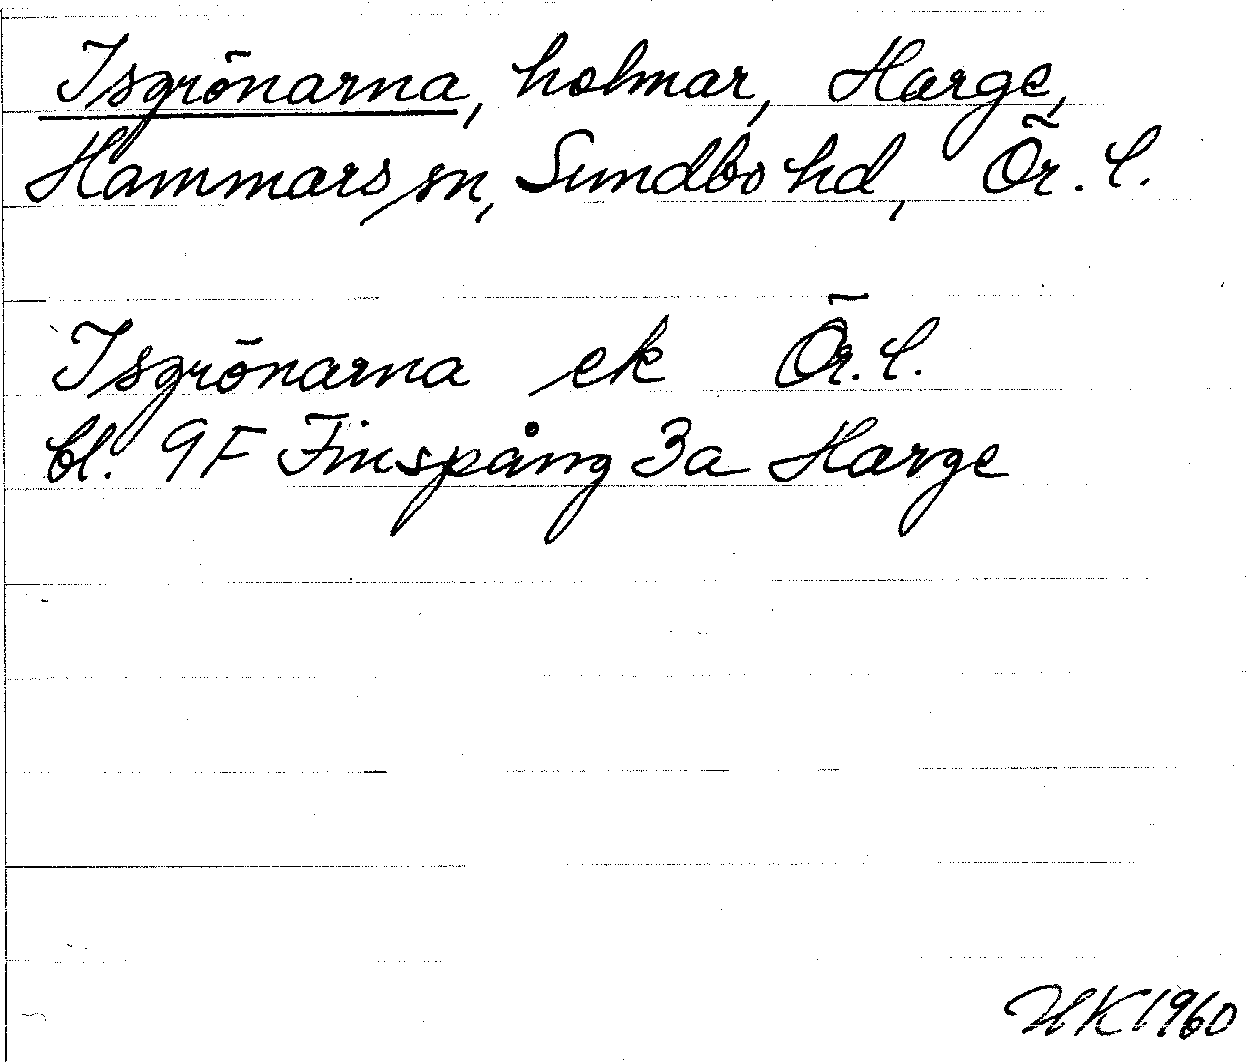 Isgrönarna, holmar, Harge,
Hammars sn, Sundbo hd, Ör. l.
Isgrönarna ek Ör. l.
bl. 9F Finspång 3a Harge
HK 1960